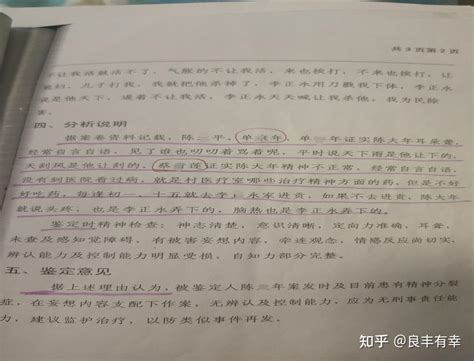 共 3 页第 2 页
不让我活就活不了，气服的不让我活，来也挨打，不来也挨打，让
，儿子打我，我就把他杀掉了。李正永用刀戳我下体，李正永
说是他天下，逼着不让我活，李正永天天喊让我杀他，我为民除
害。
四、分析说明
据案卷资料记载，陈 平，单 年，单 年证实陈大年耳朵聋，
经常自言自语，见了谁也叨叨着骂着呢，平时说天下雨是他让下的，
天刮风是他让刮的。蔡 莲证实陈大年精神不正常，经常自言自语，
没有到医院看过病，就是村医疗室哪些治疗精神方面的药，但是不好
好吃药，每逢初一、十五就去李 永家进贡，如果不去进贡，陈大年
就说头疼，也是李正永弄下的，脑热也是李正永弄下的。
鉴定时精神检查：神志清楚，意识清晰，定向力准确，耳聋，
未查及感知觉障碍，有被害妄想内容，牵连观念，情感反应尚切实，
辨认能力及控制能力明显受损，自知力部分完整。
五、鉴定意见
据上述理由认为，被鉴定人陈 年案发时及目前患有精神分裂
症，在妄想内容支配下作案，无辨认及控制能力，应为无刑事责任能
力，建议监护治疗，以防类似事件再发。
知乎 @良丰有幸